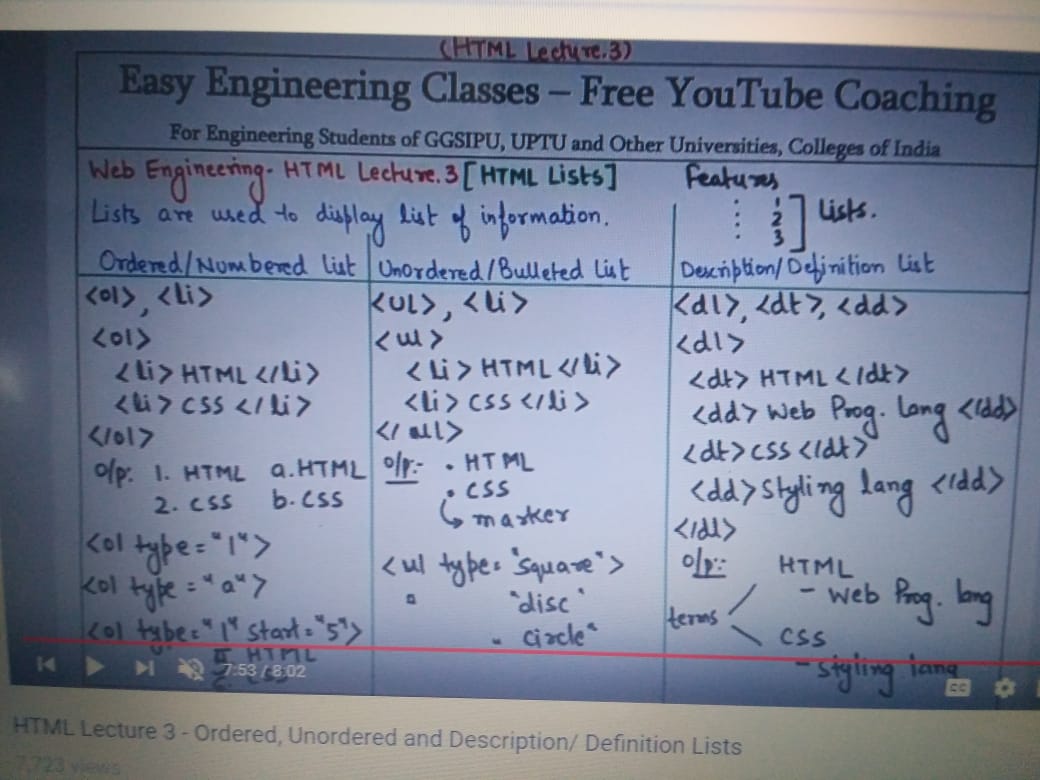 (HTML Lecture.3)
Easy Engineering Classes – Free YouTube Coaching
For Engineering Students of GGSIPU, UPTU and Other Universities, Colleges of India
Web Engineering- HTML Lecture.3 [HTML Lists]
Lists are used to display list of information.
Features
1
2
3
Lists.
Ordered/Numbered List
<ol>, <li>
<ol>
<li> HTML </li>
<li> CSS </li>
</ol>
o/p: 1. HTML a. HTML
2. CSS b. CSS
<ol type="1">
<ol type="a">
<ol type="1" start="5">
HTML
Unordered/Bulleted List
<UL>, <li>
<ul>
<li> HTML </li>
<li> CSS </li>
</ul>
o/p:- • HTML
• CSS
↳ marker
<ul type="square">
▫ "disc"
" circle"
Description/Definition List
<dl>, <dt>, <dd>
<dl>
<dt> HTML </dt>
<dd> Web Prog. lang </dd>
<dt> CSS </dt>
<dd> Styling lang </dd>
</dl>
o/p:- HTML
- Web Prog. lang
terms
CSS
- styling lang
7:53 / 8:02
CC
HTML Lecture 3 - Ordered, Unordered and Description/ Definition Lists
7,723 views